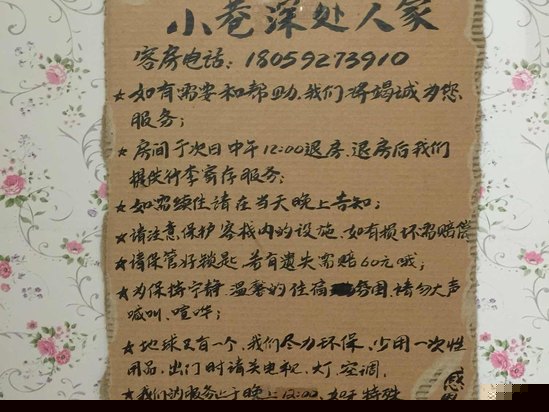 小巷深处人家
客房电话：18059273910
★如有需要和帮助，我们将竭诚为您
服务；
★房间于次日中午12:00退房、退房后我们
提供行李寄存服务；
★如需续住请在当天晚上告知；
★请注意保护客栈内的设施、如有损坏需赔偿
★请保管好锁匙、若有遗失需赔60元哦；
★为保持宁静、温馨的住宿氛围、请勿大声
喊叫、喧哗；
★地球只有一个，我们尽力环保、少用一次性
用品、出门时请关电视、灯、空调、
★我们的服务止于晚上12:00、如有特殊
感